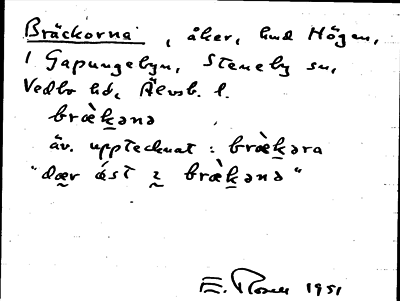 Bräckorna, åker, hmd Högen,
1 Gapungebyn, Steneby sn,
Vedbo hd, Älvsb. l.
bræ̀k̲ənə
äv. upptecknat: bræ̀k̲əra
"dær ást ɪ bræ̀k̲ənə"
E. 1951